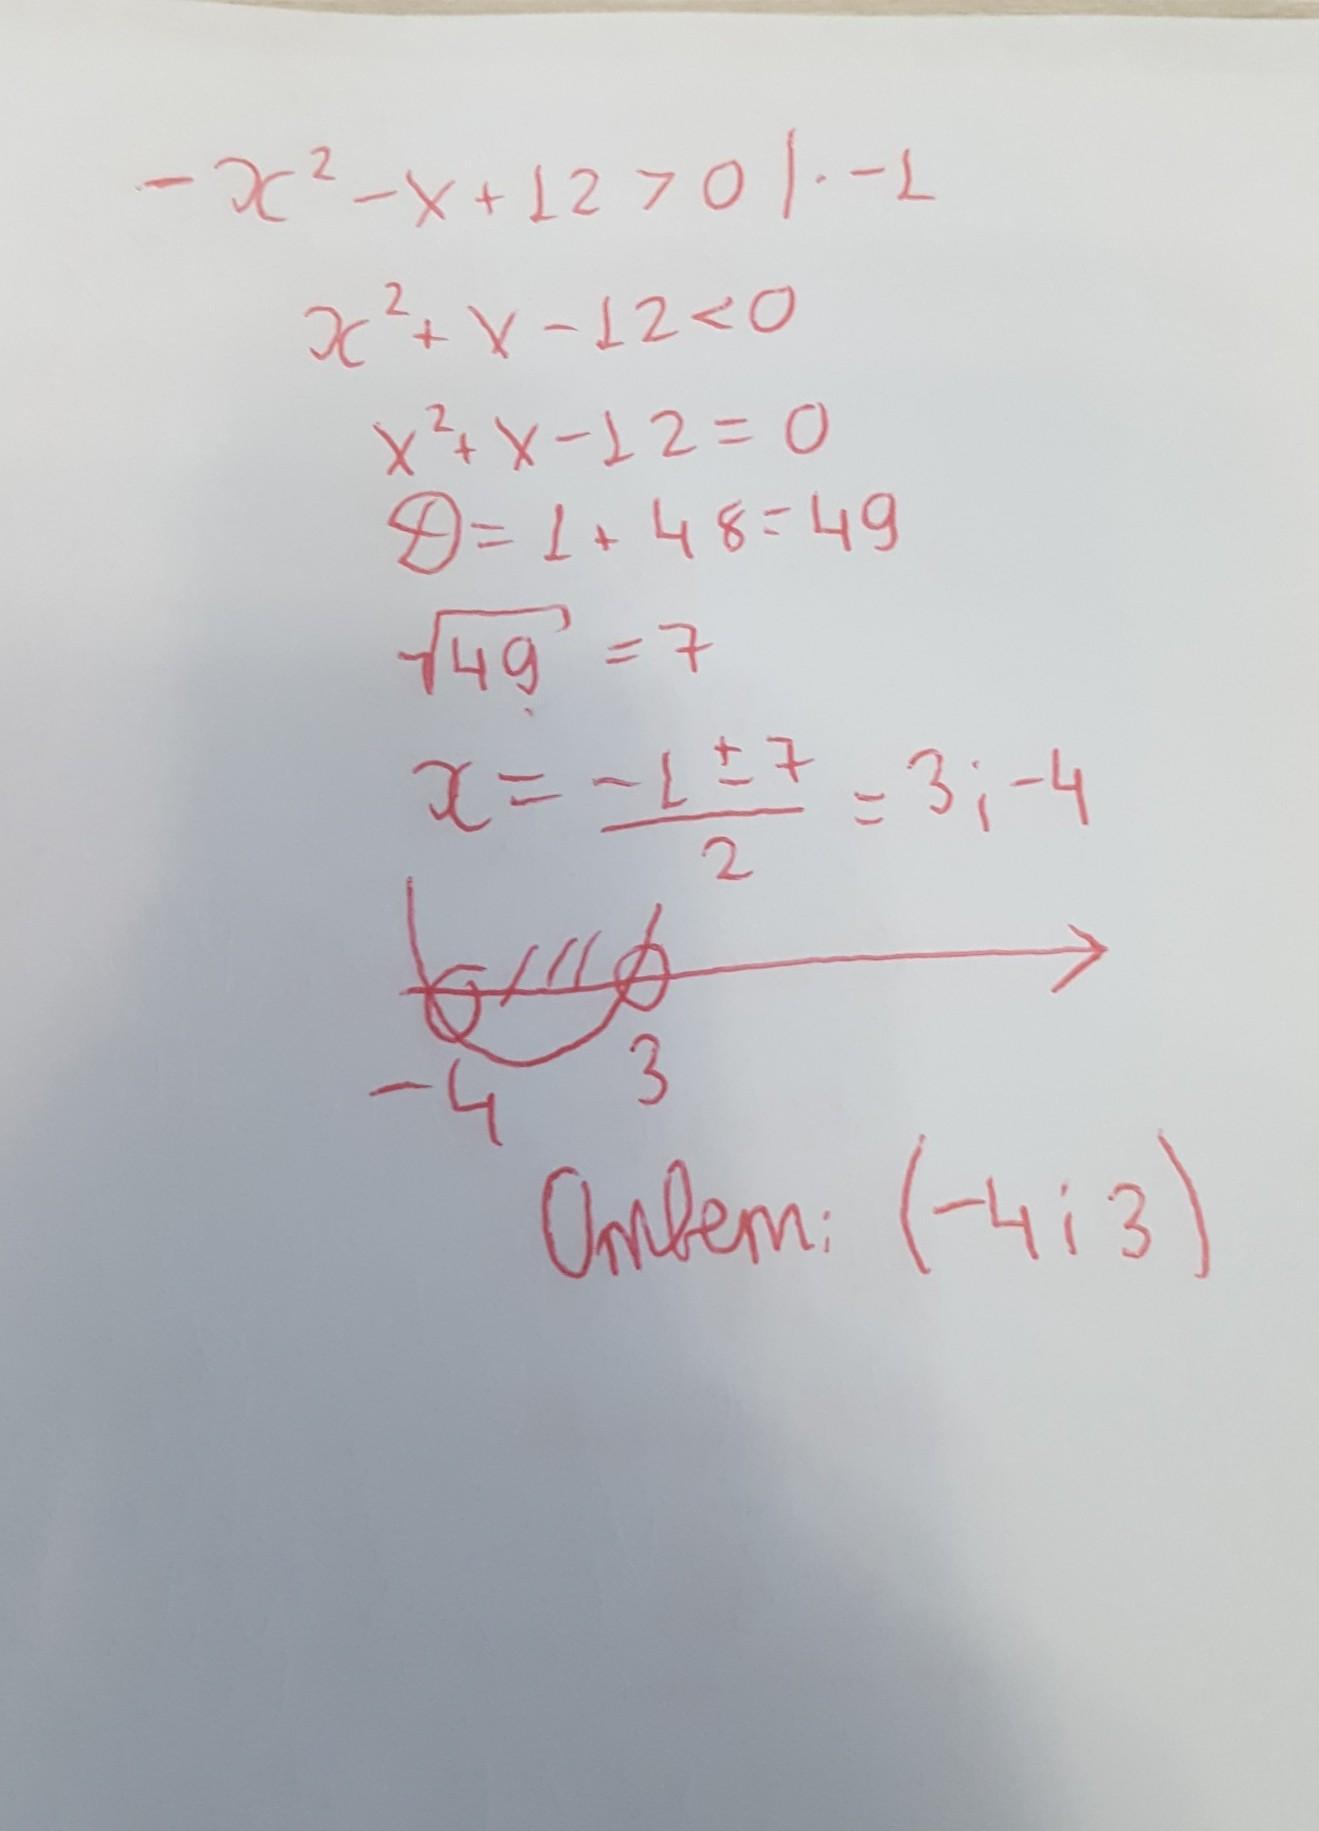 -x² -x+12>0 |·-1
x²+x-12<0
x²+x-12=0
D=1+48=49
√49 =7
x= (-1±7)/2 =3;-4
-4 3
Ответ: (-4;3)